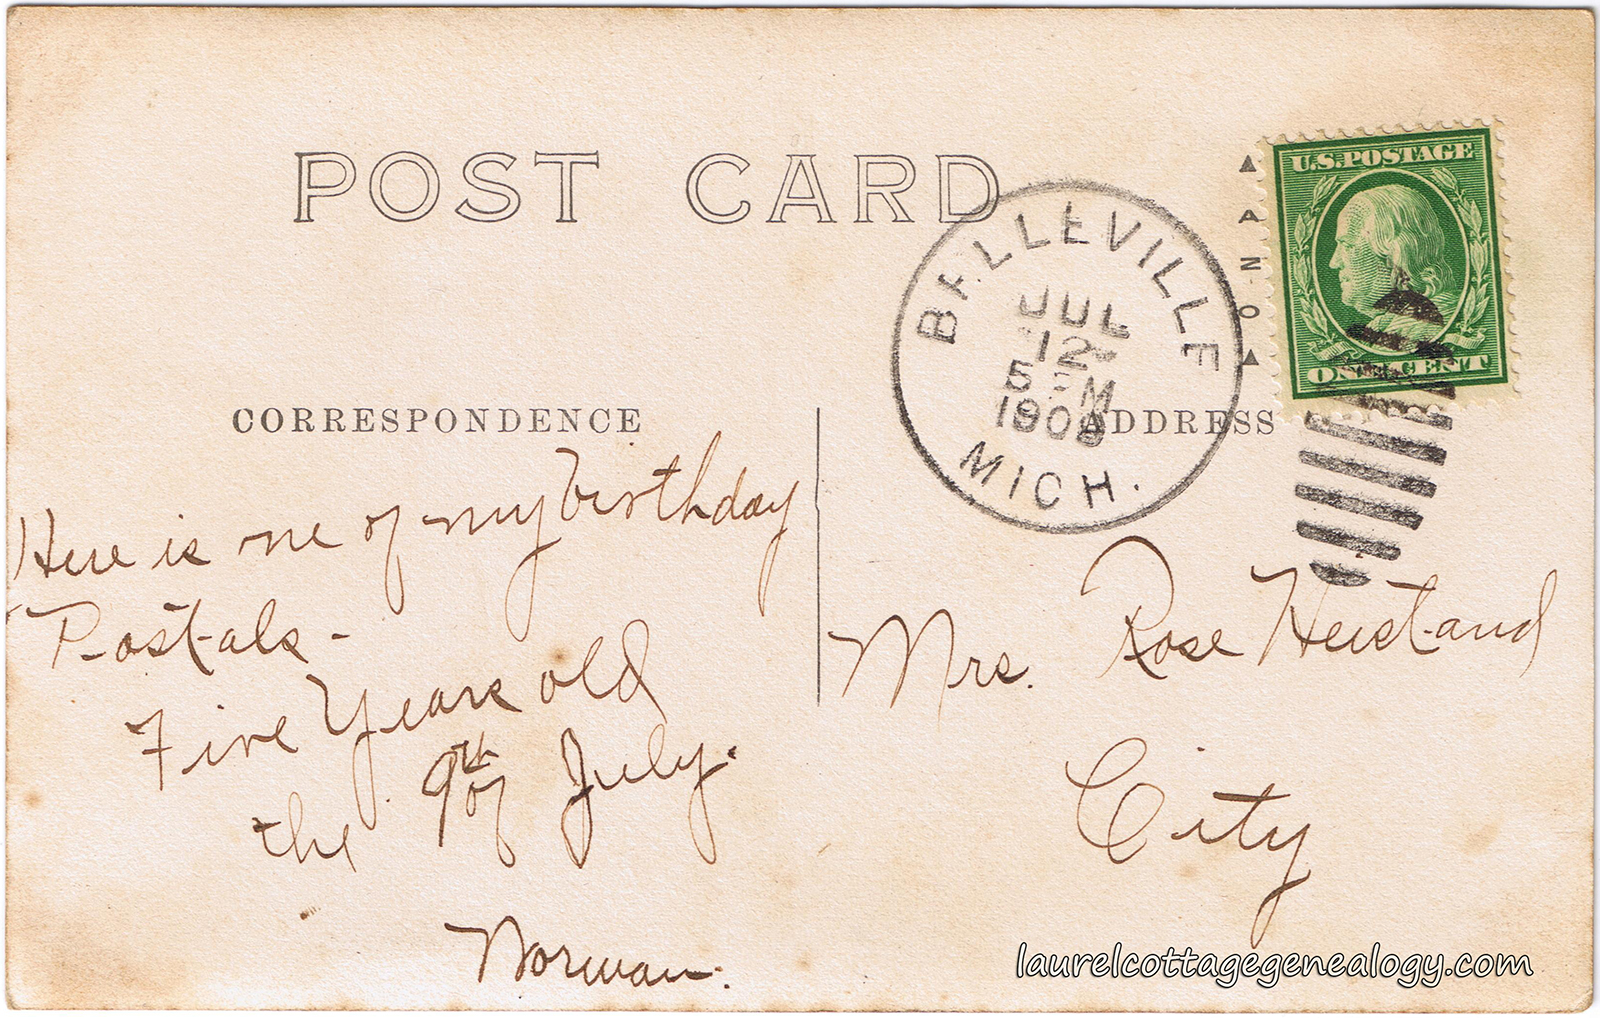 POST CARD
BELLEVILLE
JUL
12
5 PM
1909
MICH.
AZO
U.S. POSTAGE
ONE CENT
CORRESPONDENCE
ADDRESS
Here is one of my birthday
Postals -
Five Years old
the 9th of July.
Norman.
Mrs. Rose Heistand
City
laurelcottagegenealogy.com